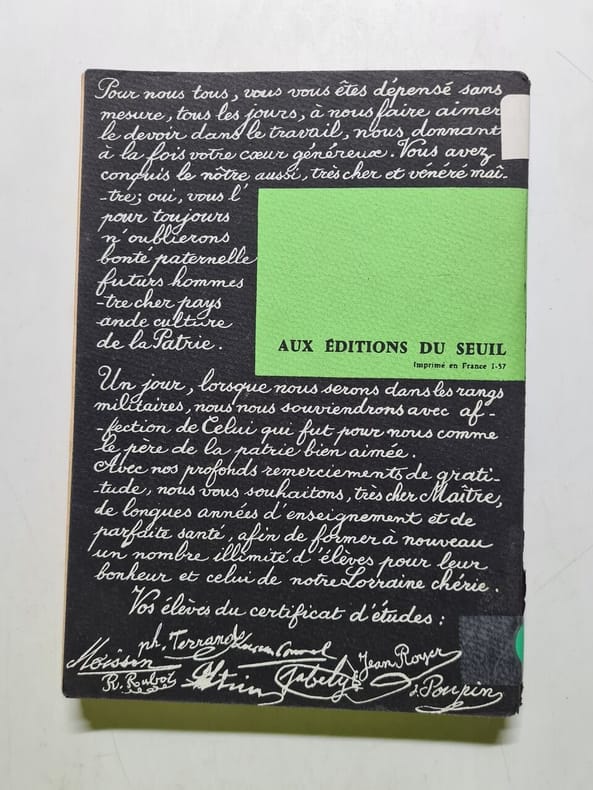 Pour nous tous, vous vous êtes dépensé sans
mesure, tous les jours, à nous faire aimer
le devoir dans le travail, nous donnant
à la fois votre cœur généreux. Vous avez
conquis le nôtre aussi, très cher et vénéré maî-
-tre; oui, vous l'
pour toujours
n'oublierons
bonté paternelle
futurs hommes
-tre cher pays
ande culture
de la Patrie.
AUX ÉDITIONS DU SEUIL
Imprimé en France 1-57
Un jour, lorsque nous serons dans les rangs
militaires, nous nous souviendrons avec af-
-fection de Celui qui fut pour nous comme
le père de la patrie bien aimée.
Avec nos profonds remerciements de grati-
-tude, nous vous souhaitons, très cher Maître,
de longues années d'enseignement et de
parfaite santé, afin de former à nouveau
un nombre illimité d'élèves pour leur
bonheur et celui de notre Lorraine chérie.
Vos élèves du certificat d'études:
ph. Terrande
Moissin
Jean Royer
R. Rubot
J. Poupin